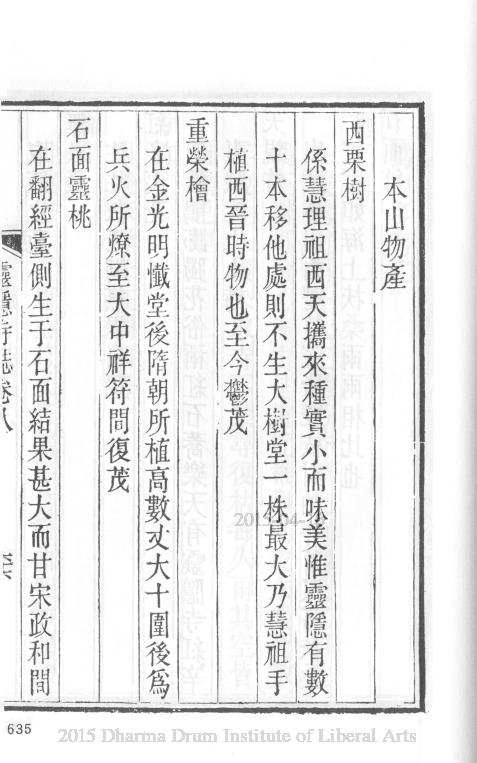 本山物產
西栗樹
係慧理祖西天攜來種實小而味美惟靈隱有數
十本移他處則不生大樹堂一株最大乃慧祖手
植西晉時物也至今鬱茂
重榮檜
在金光明懺堂後隋朝所植高數丈大十圍後為
兵火所燎至大中祥符間復茂
石面靈桃
在翻經臺側生于石面結果甚大而甘宋政和間
靈隱寺誌卷八
635
2015 Dharma Drum Institute of Liberal Arts